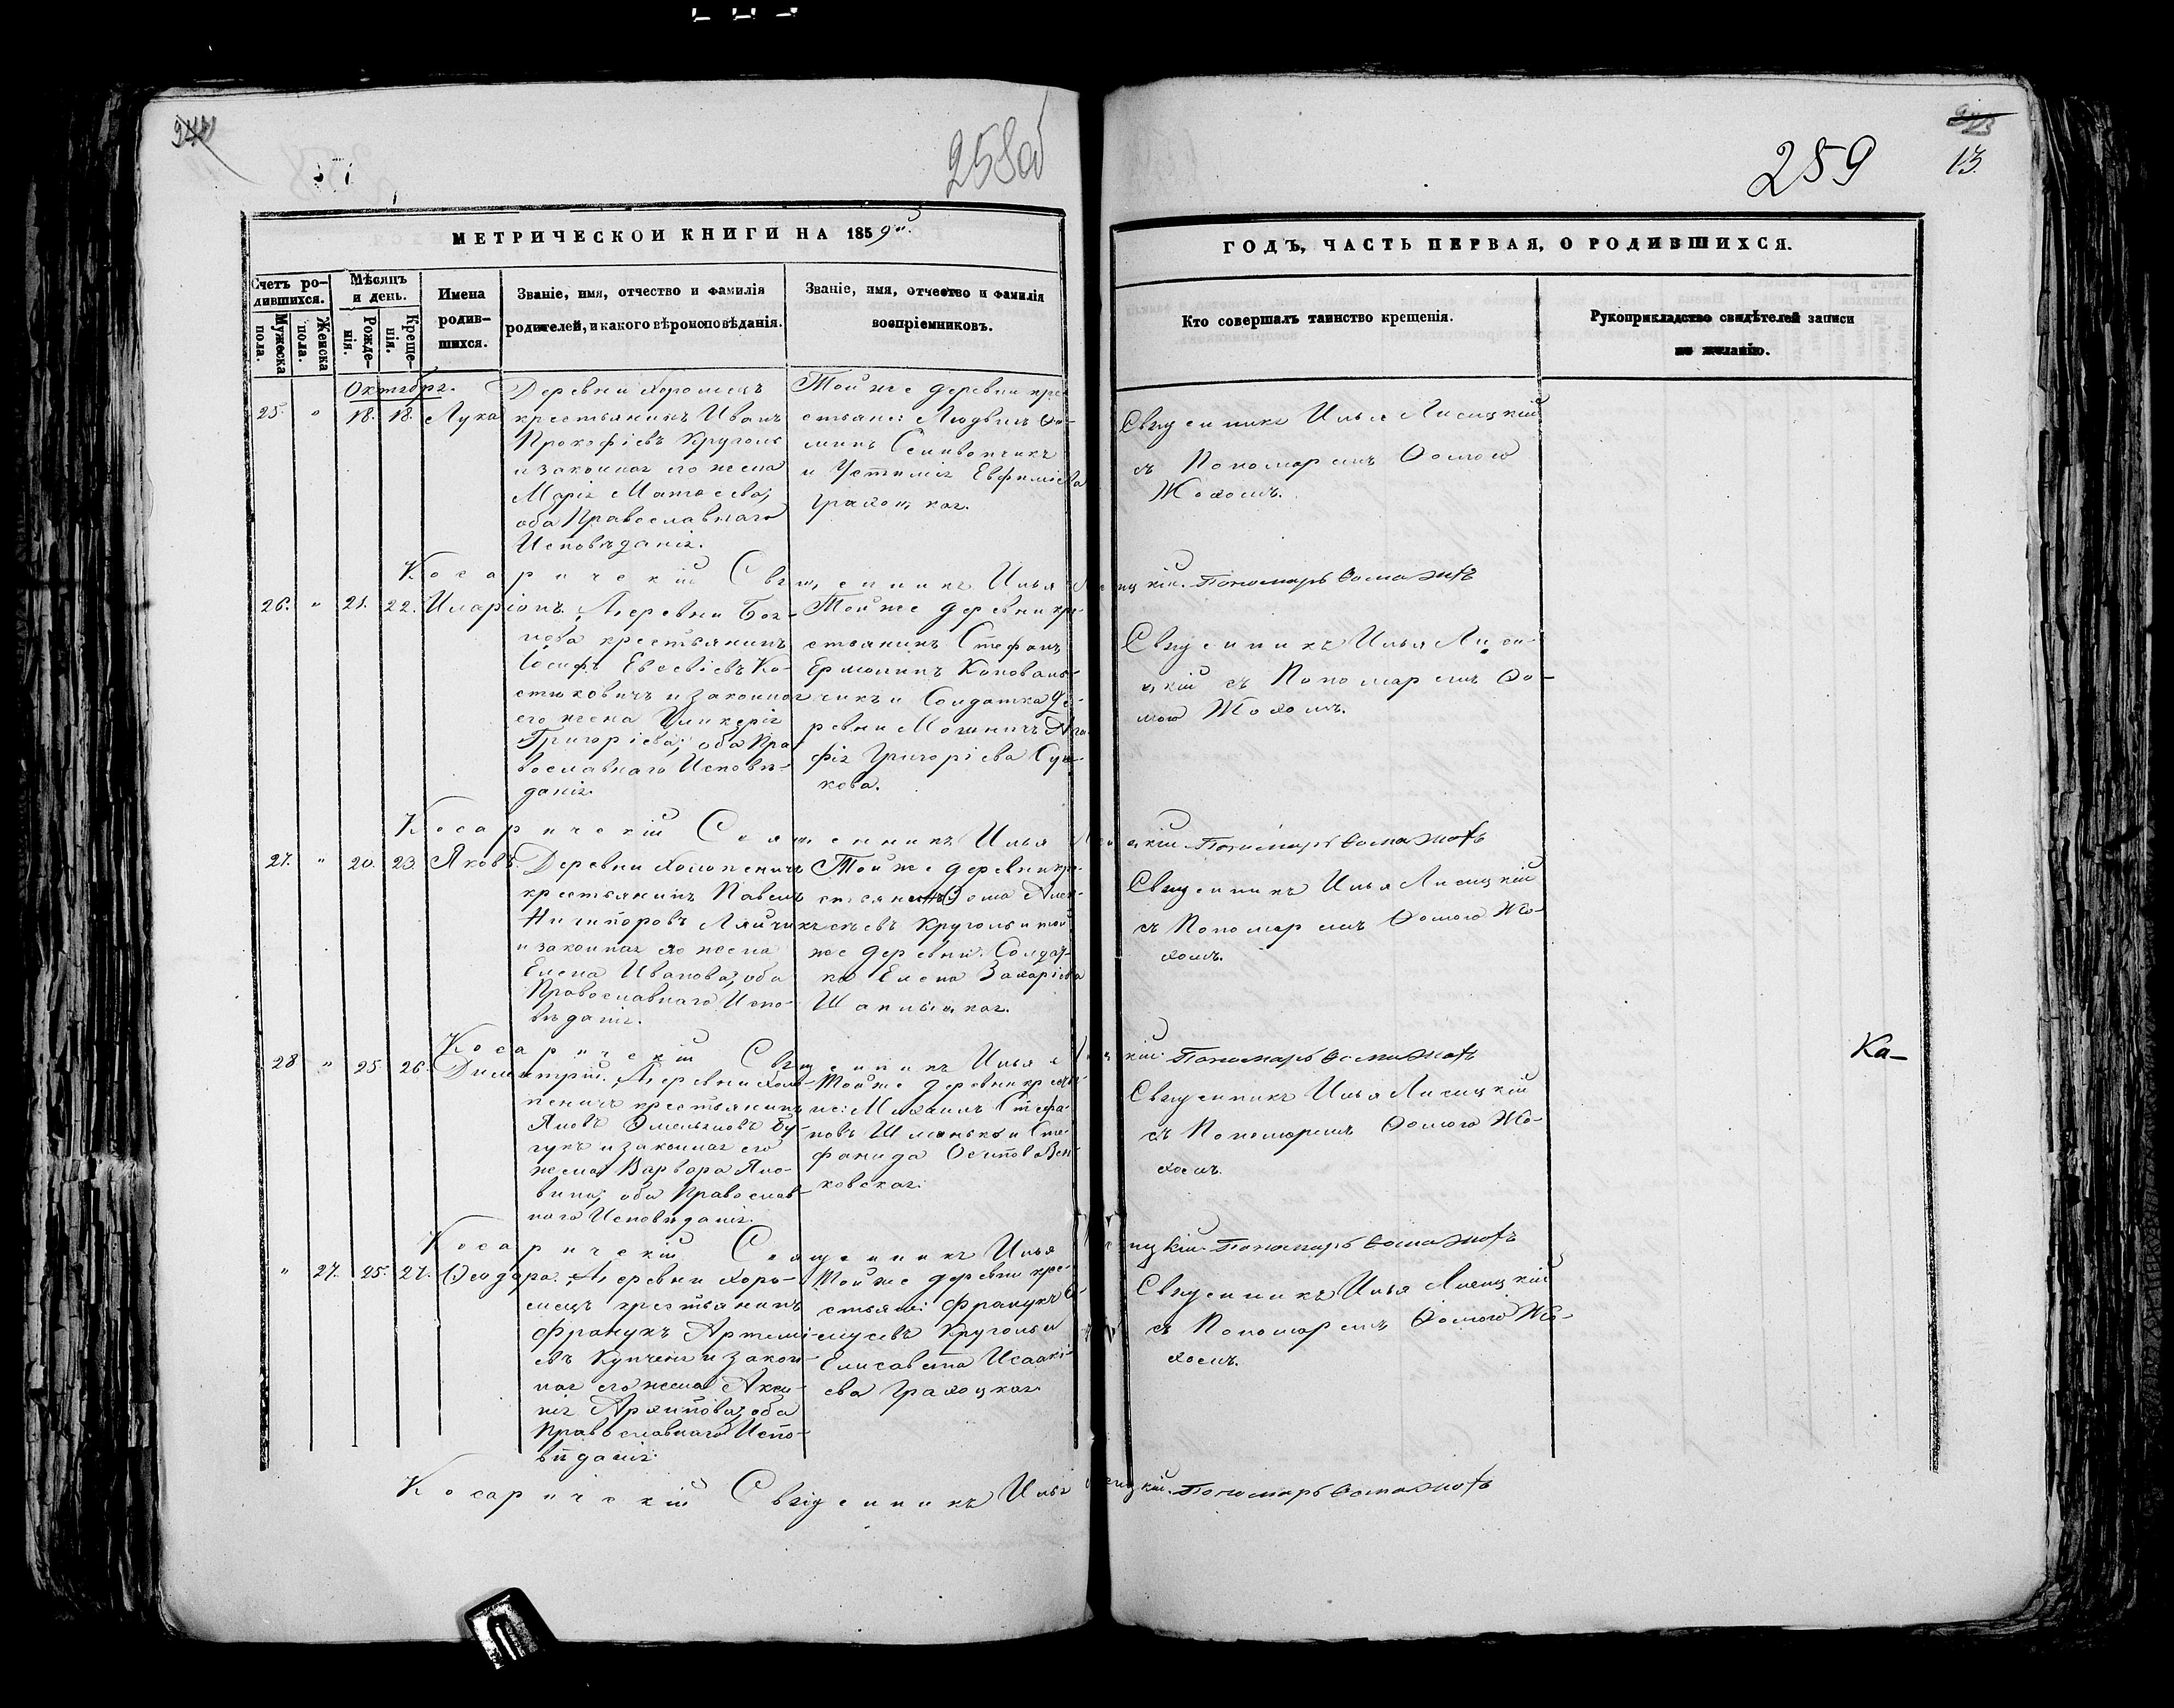 258об
259
13.
МЕТРИЧЕСКОЙ КНИГИ НА 1859й.
ГОДЪ, ЧАСТЬ ПЕРВАЯ, О РОДИВШИХСЯ.
Счетъ ро-
дившихся.
Мужеска
пола.
Женска
пола.
Мѣсяцъ
и день.
Рожде-
нія.
Креще-
нія.
Имена
родив-
шихся.
Званіе, имя, отчество и фамилія
родителей, и какого вѣроисповѣданія.
Званіе, имя, отчество и фамилія
воспріемниковъ.
Кто совершалъ таинство крещенія.
Рукоприкладство свидѣтелей записи
по желанію.
Октябрь.
25. " 18. 18. Лука
Деревни Хоромецъ
крестьянинъ Иванъ
Прокофіевъ Круголь
и законная его жена
Марія Матѳеева,
оба Православнаго
Исповѣданія.
Той же деревни кре-
стьяне: Людвигъ Ѳо-
минъ Селивончикъ
и Устинія Евфиміева
Грахоцкая.
Священникъ Илья Лисицкій
съ Пономаремъ Ѳомою
Жохомъ.
Косаричскій Священникъ Илья Лисицкій. Пономарь Ѳома Жохъ
26. " 21. 22. Иларіонъ.
Деревни Бог-
крестьянинъ
Іосифъ Евсевіевъ Ко-
стюковичъ и законная
его жена Гликерія
Григоріева; оба Пра-
вославнаго Исповѣ-
данія.
Той же деревни кре-
стьянинъ Стефанъ
Ермолинъ Коноваль-
чикъ и Солдатка де-
ревни Агa-
фія Григоріева
кова.
Священникъ Илья Лиси-
цкій съ Пономаремъ Ѳо-
мою Жохомъ.
Косаричскій Священникъ Илья Лисицкій. Пономарь Ѳома Жохъ
27. " 20. 23. Яковъ.
Деревни Холопеничъ
крестьянинъ Павелъ
Ничипоровъ Ляйчикъ
и законная его жена
Елена Иванова, оба
Православнаго Испо-
вѣданія.
Той же деревни кре-
стьянинъ Ѳома Алек-
сѣевъ Круголь и той
же деревни Солдат-
ка Елена Захаріева
Шаплыцкая.
Священникъ Илья Лисицкій
съ Пономаремъ Ѳомою Жо-
хомъ.
Косаричскій Священникъ Илья Лисицкій. Пономарь Ѳома Жохъ
Ка-
28 " 25. 26. Димитрій.
Деревни Холо-
пеничъ крестьянинъ
Яковъ Омельяновъ Бу-
гукъ и законная его
жена Варвара Яко-
влева, оба Православ-
наго Исповѣданія.
Той же деревни крестья-
не: Михаилъ Стефа-
новъ Шманько и Сте-
фанида Осипова
ковская.
Священникъ Илья Лисицкій
съ Пономаремъ Ѳомою Жо-
хомъ.
Косаричскій Священникъ Илья Лисицкій. Пономарь Ѳома Жохъ
" 27. 25. 27. Ѳеодора.
Деревни Хоро-
мецъ крестьянинъ
Францукъ Артемі-
евъ Купченя и закон-
ная его жена Аксе-
нія Архипова, оба
Православнаго Испо-
вѣданія.
Той же деревни кре-
стьяне: Францукъ
Круголь и
Елисавета Исаакі-
ева Грахоцкая.
Священникъ Илья Лисицкій
съ Пономаремъ Ѳомою Жо-
хомъ.
Косаричскій Священникъ Илья Лисицкій. Пономарь Ѳома Жохъ